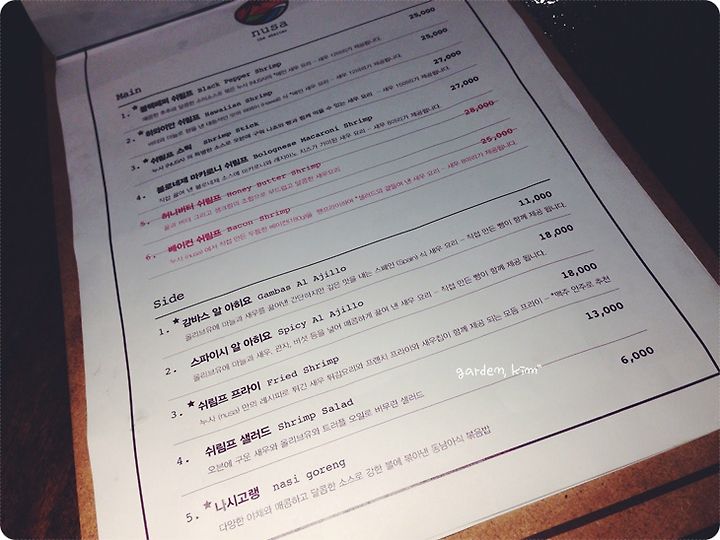 nusa
the atelier
Main
1. *블랙페퍼 쉬림프 Black Pepper Shrimp 25,000
2. *하와이안 쉬림프 Hawaiian Shrimp 25,000
3. *쉬림프 스틱 Shrimp Stick 27,000
4. 볼로네제 마카로니 쉬림프 Bolognese Macaroni Shrimp 27,000
직접 끓여 낸 볼로네제 소스에 마카로니와 체다치즈가 가미된 새우 요리 - 새우 8마리가 제공됩니다.
5. 허니버터 쉬림프 Honey Butter Shrimp 28,000
꿀과 버터 그리고 생크림의 조합으로 부드럽고 달콤한 새우요리
6. 베이컨 쉬림프 Bacon Shrimp 25,000
Side
1. *감바스 알 아히요 Gambas Al Ajillo 11,000
올리브유에 마늘과 새우를 끓여낸 간단하지만 깊은 맛을 내는 스페인 (Spain) 식 새우 요리 - 직접 만든 빵이 함께 제공 됩니다.
2. 스파이시 알 아히요 Spicy Al Ajillo 18,000
올리브유에 마늘과 새우, 관자, 버섯 등을 넣어 매콤하게 끓여 낸 새우 요리 - 직접 만든 빵이 함께 제공 됩니다.
3. *쉬림프 프라이 Fried Shrimp 18,000
누사 (nusa) 만의 레시피로 튀긴 새우 튀김요리와 프렌치 프라이와 새우칩이 함께 제공 되는 모듬 프라이 - *맥주 안주로 추천
4. 쉬림프 샐러드 Shrimp Salad 13,000
오븐에 구운 새우와 올리브유와 트러플 오일로 버무려낸 샐러드
5. *나시고랭 nasi goreng 6,000
다양한 야채와 매콤하고 달콤한 소스로 강한 불에 볶아낸 동남아식 볶음밥
garden, kim